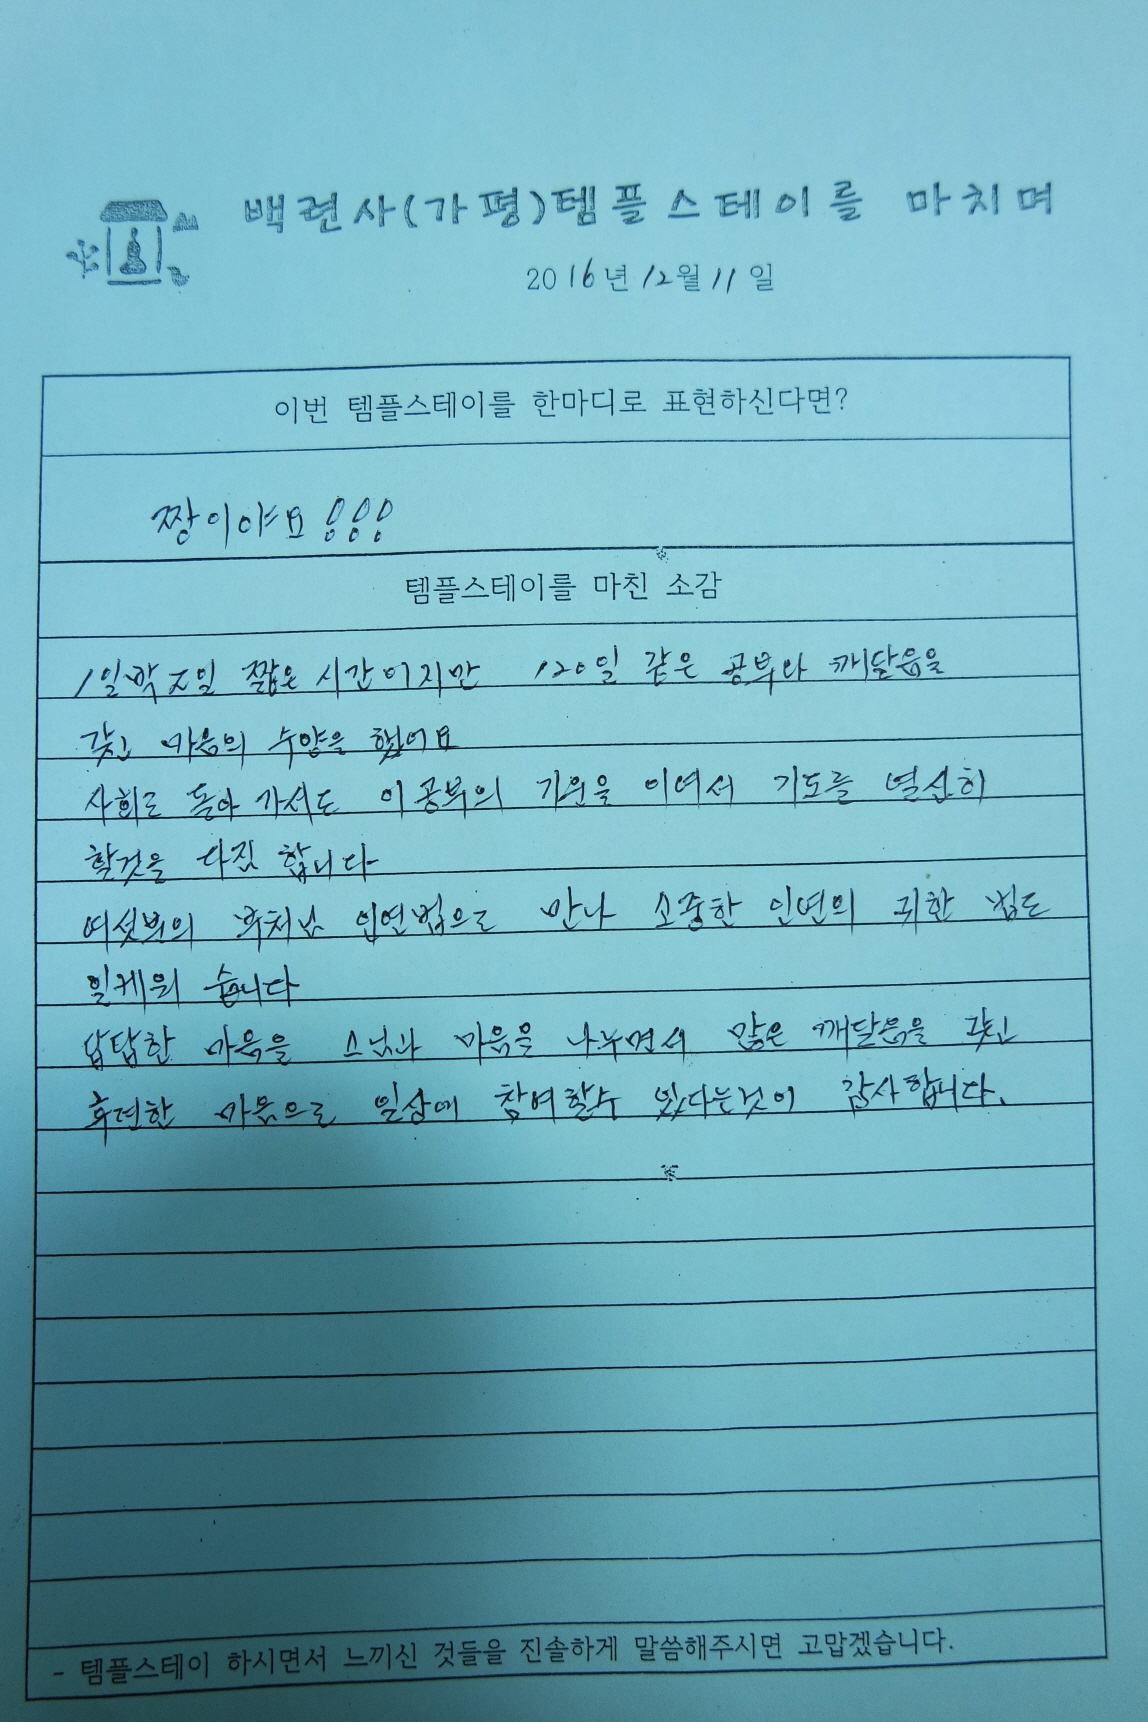 백련사(가평)템플스테이를 마치며
2016년 12월 11일
이번 템플스테이를 한마디로 표현하신다면?
짱이야요!!!
템플스테이를 마친 소감
1일박 2일 짧은 시간이지만 120일 같은 공부와 깨달음을
갖고 마음의 수양을 했어요
사회로 돌아 가서도 이 공부의 기운을 이여서 기도를 열심히
할것을 다짐 합니다
여섯분의 부처님 인연법으로 만나 소중한 인연의 귀한 법도
일케워 습니다
답답한 마음을 스님과 마음을 나누면서 많은 깨달음을 갖고
후련한 마음으로 일상에 참여할수 있다는것이 감사합니다.
- 템플스테이 하시면서 느끼신 것들을 진솔하게 말씀해주시면 고맙겠습니다.